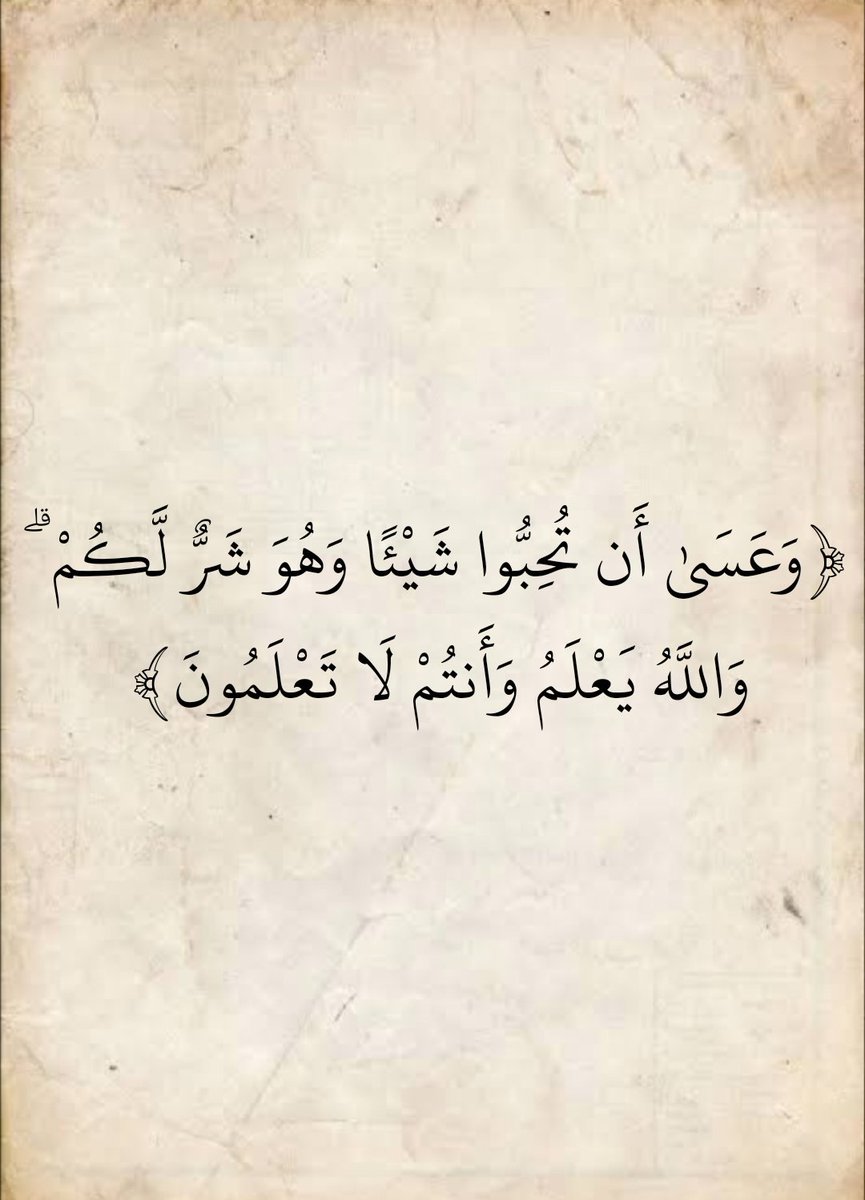 ﴿وَعَسَىٰ أَن تُحِبُّوا شَيْئًا وَهُوَ شَرٌّ لَّكُمْ ۗ
وَاللَّهُ يَعْلَمُ وَأَنتُمْ لَا تَعْلَمُونَ﴾